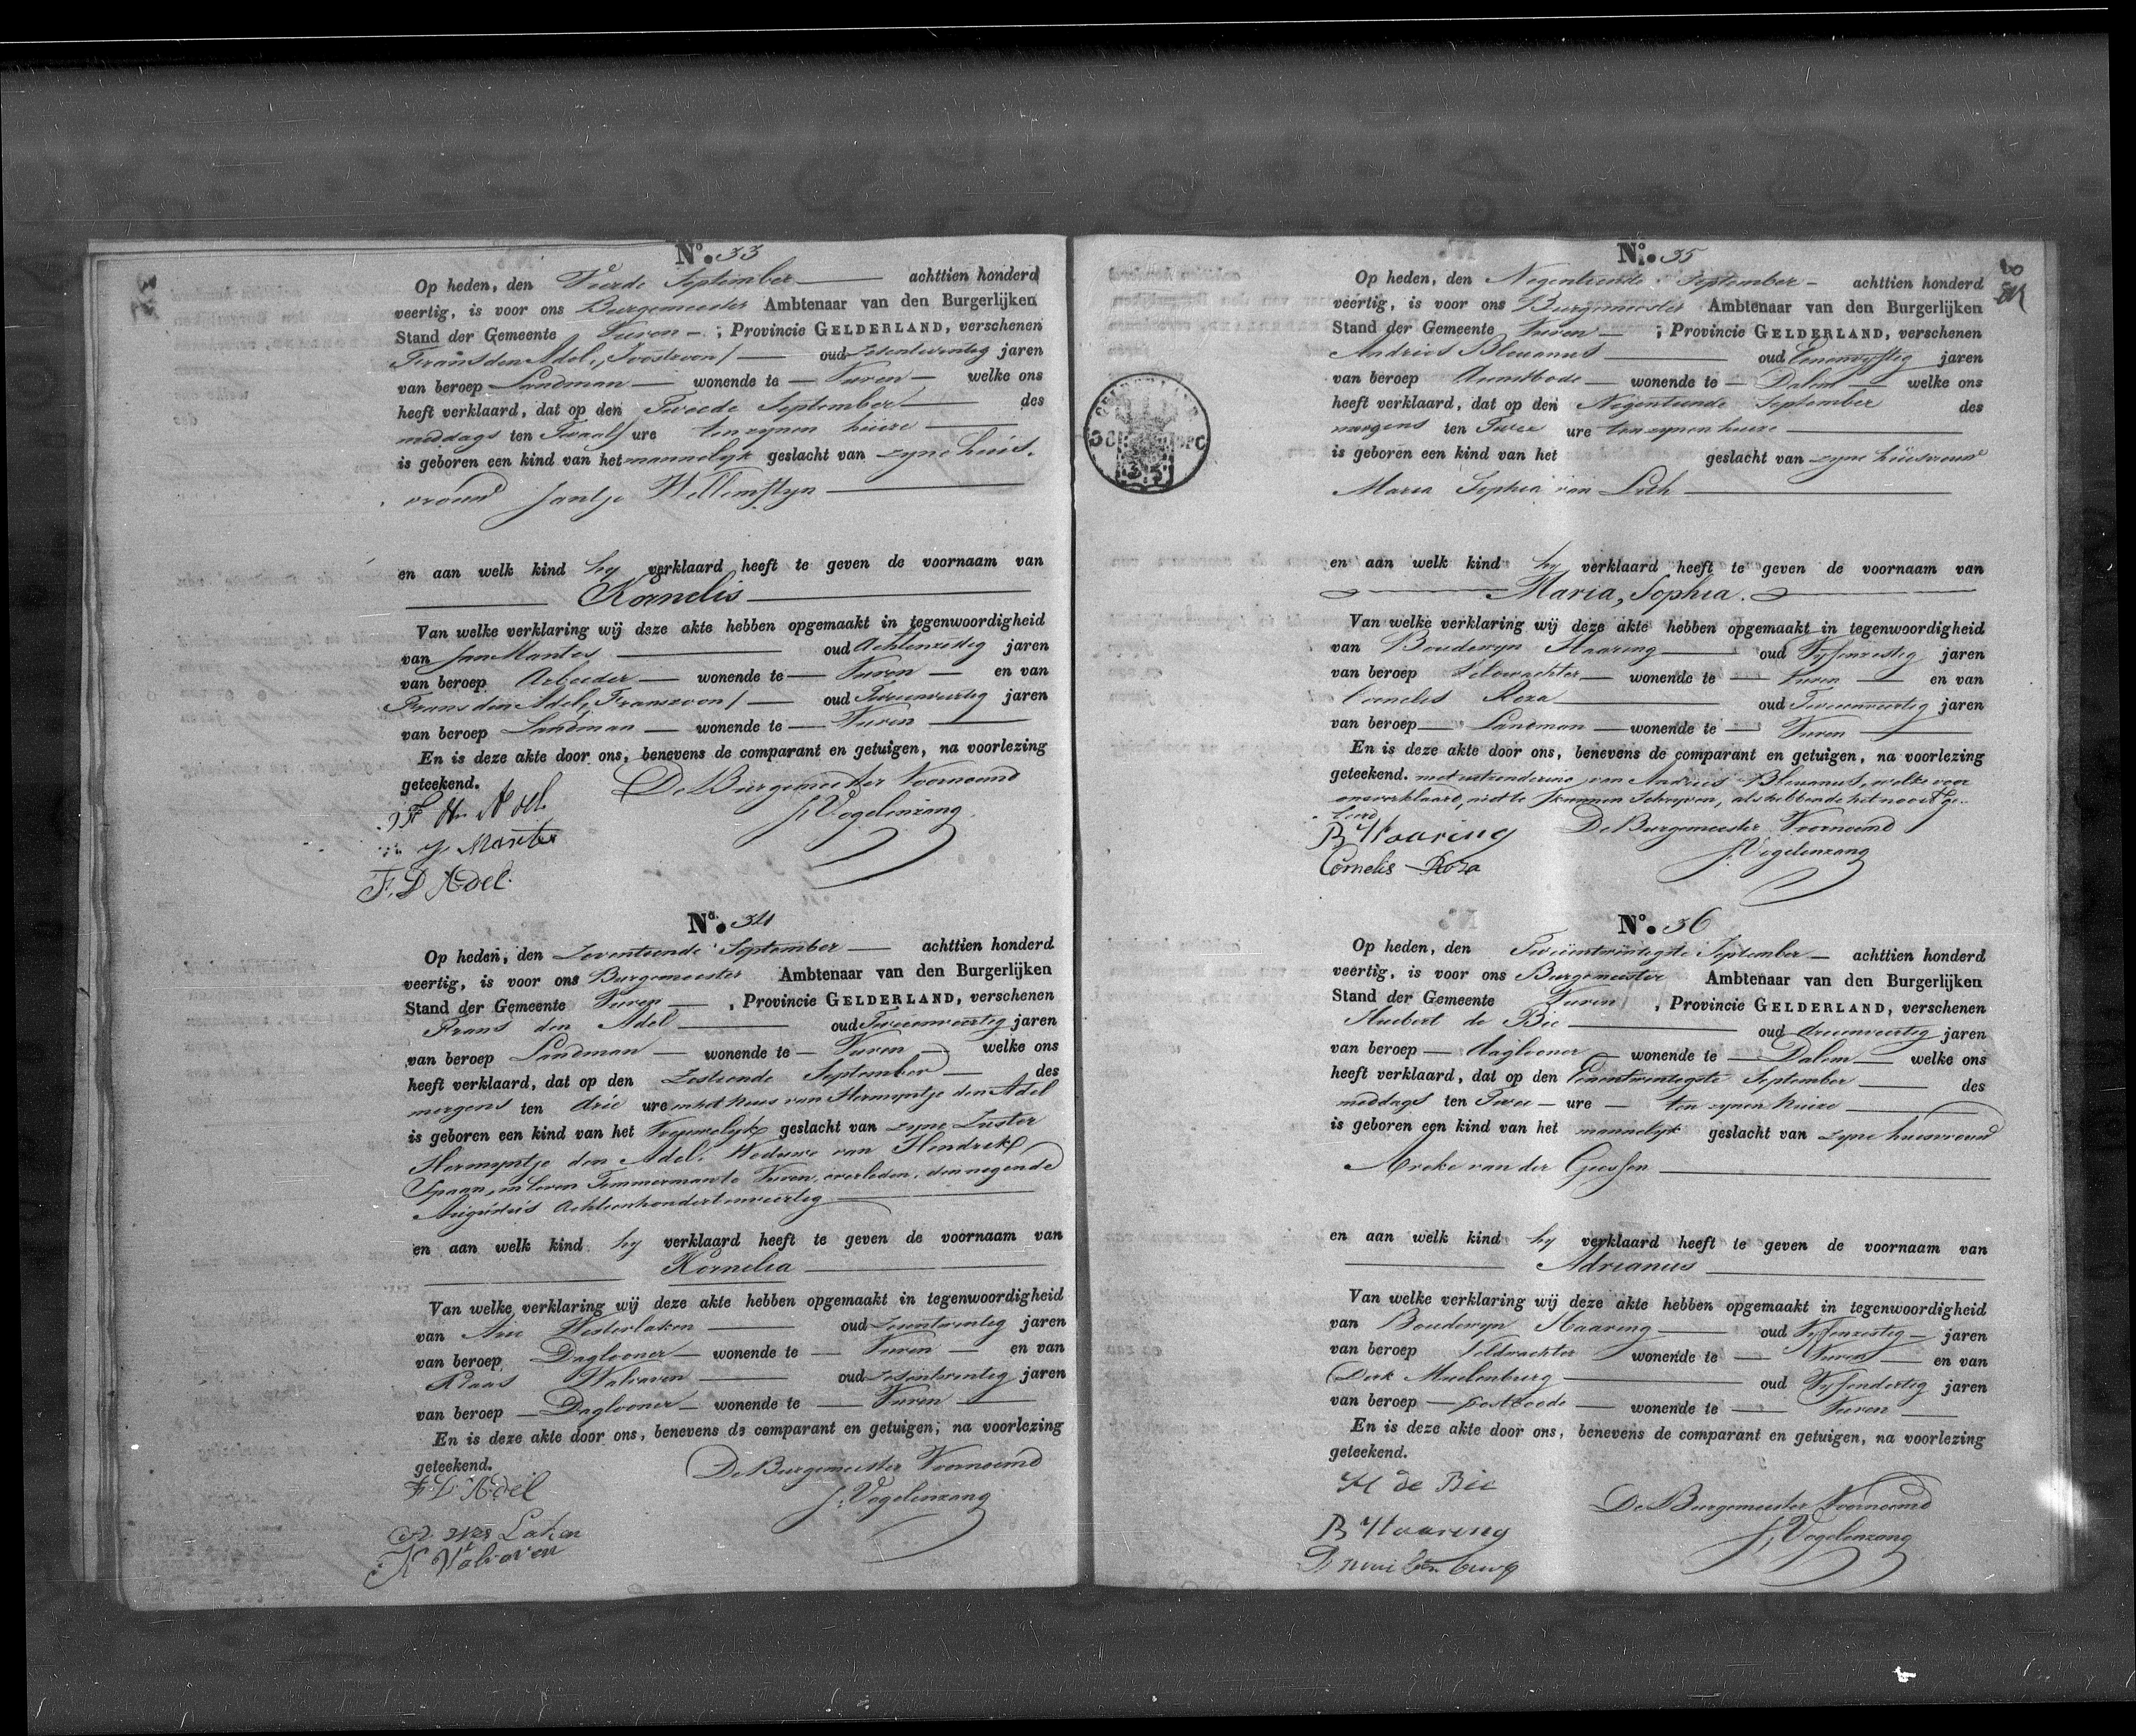 N.º 33
Op heden, den Vierde September achttien honderd
veertig, is voor ons Burgemeester Ambtenaar van den Burgerlijken
Stand der Gemeente Vuren ; Provincie GELDERLAND, verschenen
Frans den Adel, Joostzoon / oud Zesentwintig jaren
van beroep Landman wonende te Vuren welke ons
heeft verklaard, dat op den Tweede September des
middags ten Twaalf ure ten zynen huize
is geboren een kind van het mannelyk geslacht van zyne huis-
vrouw Jantje Willemstyn
en aan welk kind hy verklaard heeft te geven de voornaam van
Kornelis
Van welke verklaring wij deze akte hebben opgemaakt in tegenwoordigheid
van Jan Mantes oud Achtenzestig jaren
van beroep Arbeider wonende te Vuren en van
Frans den Adel, Franszoon / oud Tweeenveertig jaren
van beroep Landman wonende te Vuren
En is deze akte door ons, benevens de comparant en getuigen, na voorlezing
geteekend. De Burgemeester Voornoemd
F den Adel J. Vogelenzang
F. D Adel.
N.º 34
Op heden, den Zeventiende September achttien honderd
veertig, is voor ons Burgemeester Ambtenaar van den Burgerlijken
Stand der Gemeente Vuren , Provincie GELDERLAND, verschenen
Frans den Adel oud Tweeenveertig jaren
van beroep Landman wonende te Vuren welke ons
heeft verklaard, dat op den Zestiende September des
morgens ten drie ure in het huis van Hermyntje den Adel
is geboren een kind van het Vrouwelyk geslacht van zyne Zuster
Hermyntje den Adel, Weduwe van Hendrik
Spaan, in leven Timmerman te Vuren, overleden, den negende
Augustus Achtienhonderd en veertig
en aan welk kind hy verklaard heeft te geven de voornaam van
Kornelia
Van welke verklaring wij deze akte hebben opgemaakt in tegenwoordigheid
van Arie Westerlaken oud Zesentwintig jaren
van beroep Daglooner wonende te Vuren en van
Klaas Walraven oud Zesentwintig jaren
van beroep Daglooner wonende te Vuren
En is deze akte door ons, benevens de comparant en getuigen, na voorlezing
geteekend. De Burgemeester Voornoemd
F. D Adel J. Vogelenzang
K Walraven
N.º 35
Op heden, den Negentiende September achttien honderd
veertig, is voor ons Burgemeester Ambtenaar van den Burgerlijken
Stand der Gemeente Vuren ; Provincie GELDERLAND, verschenen
Andries Blouanus oud Eenenvyftig jaren
van beroep wonende te Dalem welke ons
heeft verklaard, dat op den Negentiende September des
morgens ten Twee ure ten zynen huize
is geboren een kind van het geslacht van zyne huisvrouw
Maria Sophia van Lith
en aan welk kind hy verklaard heeft te geven de voornaam van
Maria, Sophia.
Van welke verklaring wij deze akte hebben opgemaakt in tegenwoordigheid
van Boudewyn Haaring oud Vyfenzestig jaren
van beroep Veldwachter wonende te Vuren en van
Cornelis Roza oud Tweeenveertig jaren
van beroep Landman wonende te Vuren
En is deze akte door ons, benevens de comparant en getuigen, na voorlezing
geteekend. met uitzondering van Andries Blouanus, welke voor
ons verklaard, niet te kunnen Schryven, als hebbende het nooit ge-
leerd
B Haaring De Burgemeester Voornoemd
Cornelis Roza J. Vogelenzang
N.º 36
Op heden, den Tweeentwintigste September achttien honderd
veertig, is voor ons Burgemeester Ambtenaar van den Burgerlijken
Stand der Gemeente Vuren , Provincie GELDERLAND, verschenen
Huibert de Bie oud drieenveertig jaren
van beroep daglooner wonende te Dalem welke ons
heeft verklaard, dat op den Eenentwintigste September des
middags ten Twee ure ten zynen huize
is geboren een kind van het mannelyk geslacht van zyne huisvrouw
van der Giessen
en aan welk kind hy verklaard heeft te geven de voornaam van
Adrianus
Van welke verklaring wij deze akte hebben opgemaakt in tegenwoordigheid
van Boudewyn Haaring oud Vyfenzestig jaren
van beroep Veldwachter wonende te Vuren en van
Dirk Muilenburg oud Vyfendertig jaren
van beroep postbode wonende te Vuren
En is deze akte door ons, benevens de comparant en getuigen, na voorlezing
geteekend.
H de Bie De Burgemeester Voornoemd
B Haaring J. Vogelenzang
D muilenburg